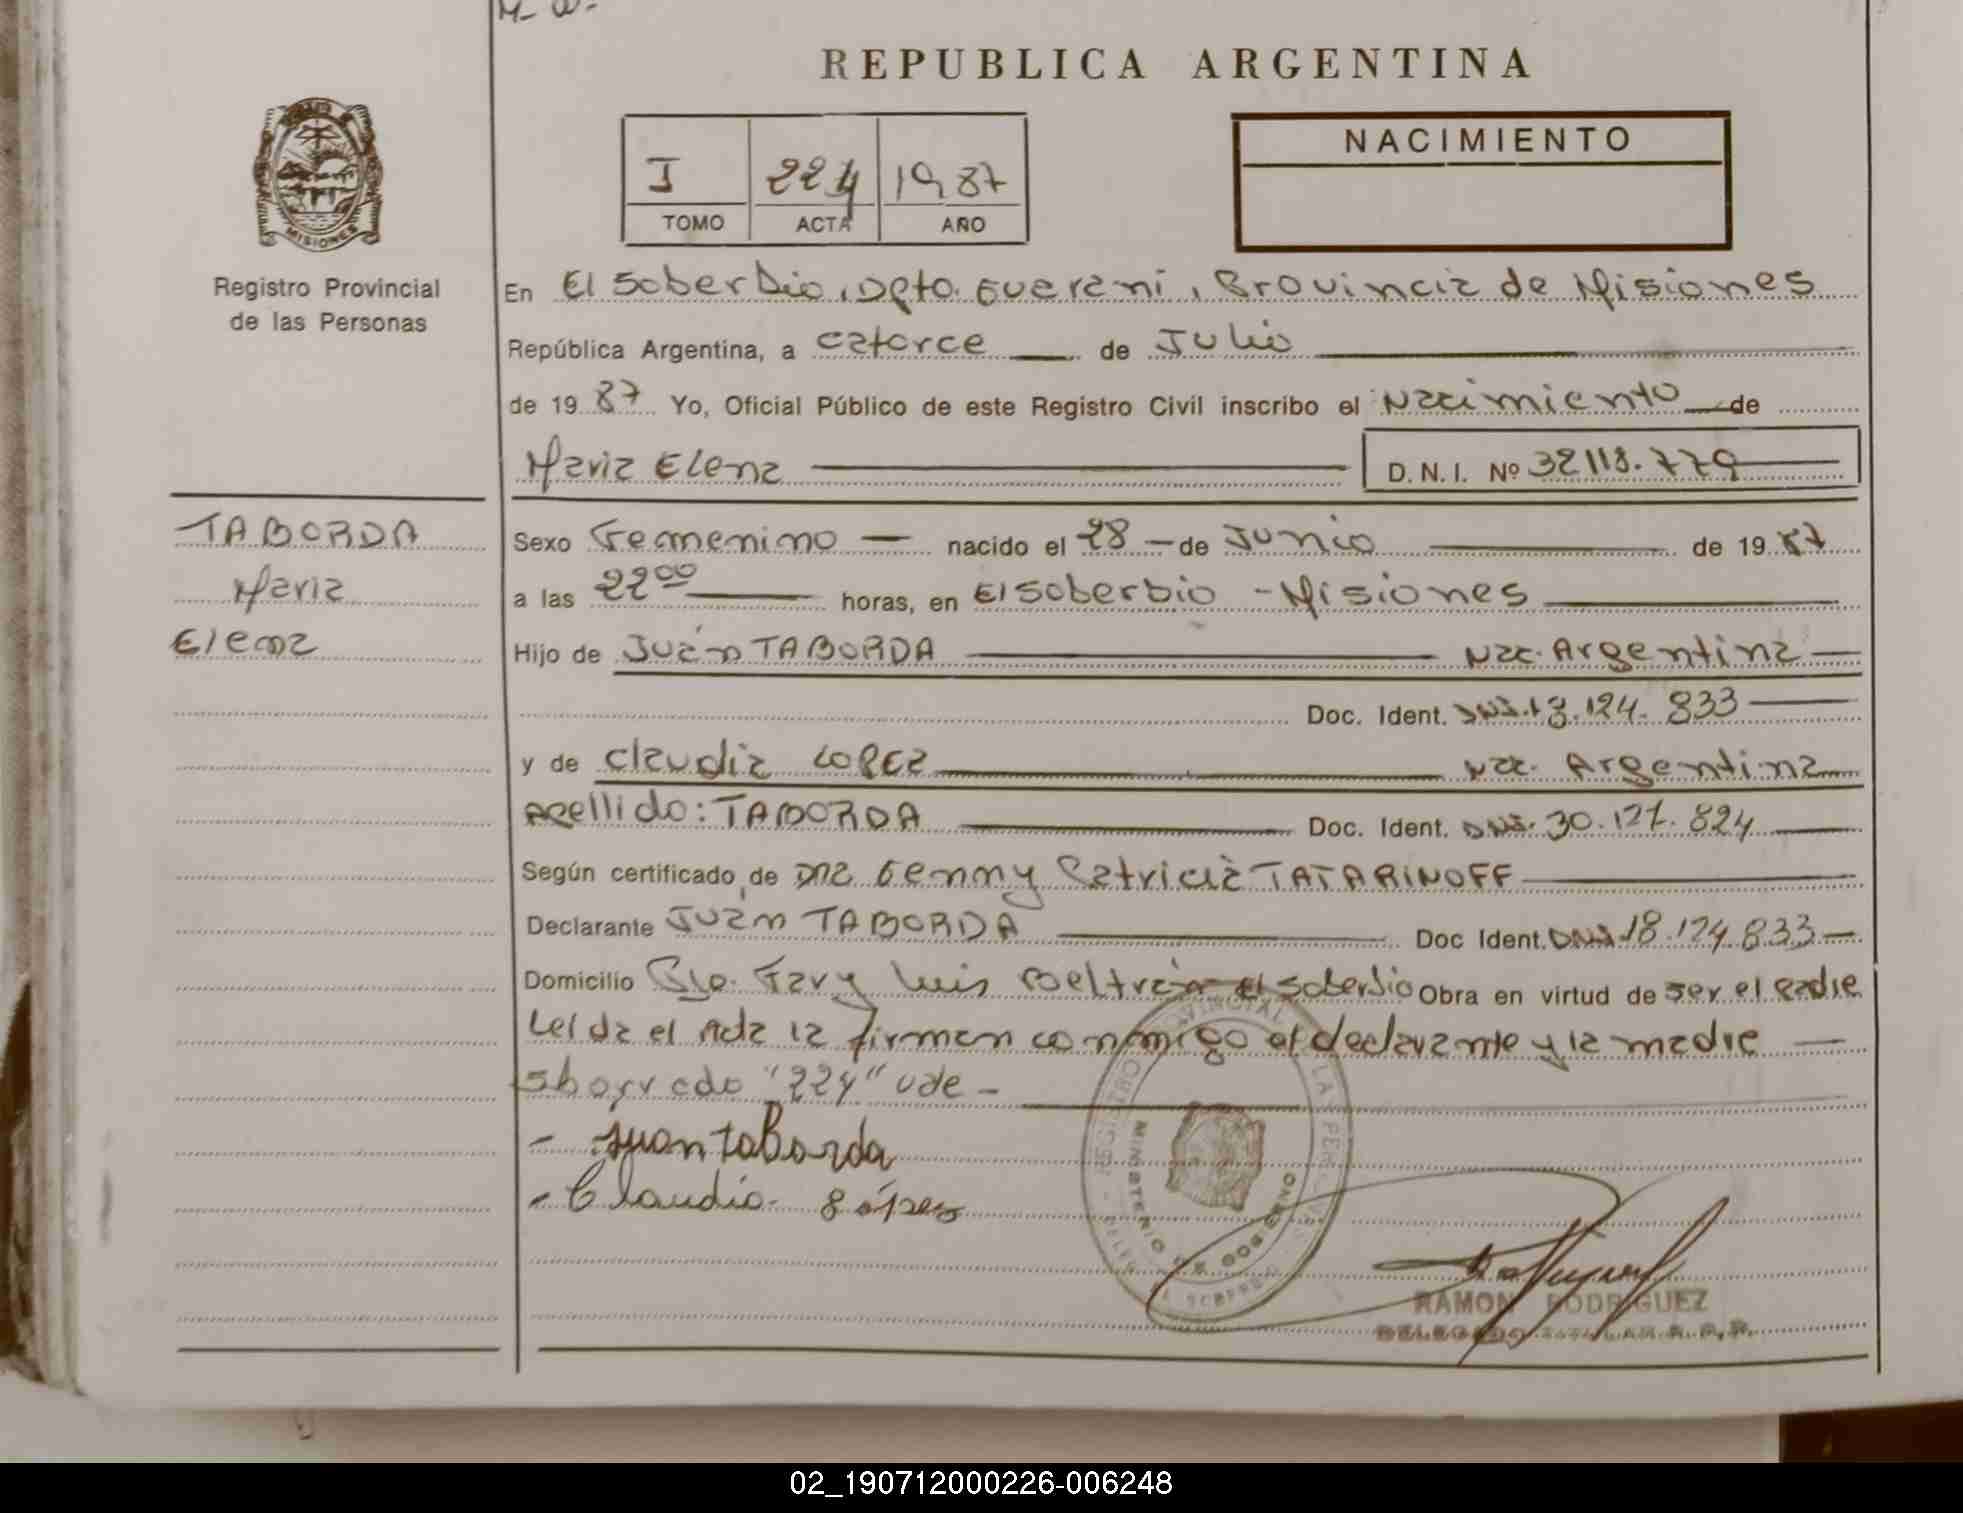 REPUBLICA ARGENTINA
MISIONES
Registro Provincial
de las Personas
I 224 1987
TOMO ACTA AÑO
NACIMIENTO
En El Soberbio, Dpto. Guarani, Provincia de Misiones
República Argentina, a catorce de Julio
de 1987 Yo, Oficial Público de este Registro Civil inscribo el Nacimiento de
Maria Elena D.N.I. Nº 32118.779
TABORDA
Maria
Elena
Sexo Femenino nacido el 28 de Junio de 1987
a las 22 00 horas, en El Soberbio - Misiones
Hijo de Juán TABORDA Nac. Argentina
Doc. Ident. DNI. 124.833
y de Claudia LOPEZ Nac. Argentina
Apellido: TABORDA Doc. Ident. DNI. 30.127.824
Según certificado de Dra Genny Patricia TATARINOFF
Declarante Juán TABORDA Doc Ident. DNI 18.124.833
Domicilio Bo. Fray Luis Beltrán El Soberbio Obra en virtud de ser el padre
Leida el Acta la firman conmigo el declarante y la madre
Sborrado "224" Vale -
- Juan taborda
- Claudia López
REGISTRO PROVINCIAL DE LAS PERSONAS
MINISTERIO DE GOBIERNO
RAMON RODRIGUEZ
DELEGADO TITULAR R.P.P.
02_190712000226-006248